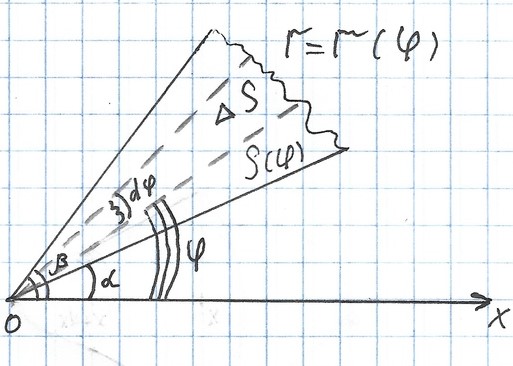 r = r(φ)
ΔS
S(φ)
dφ
β
α
φ
O
x